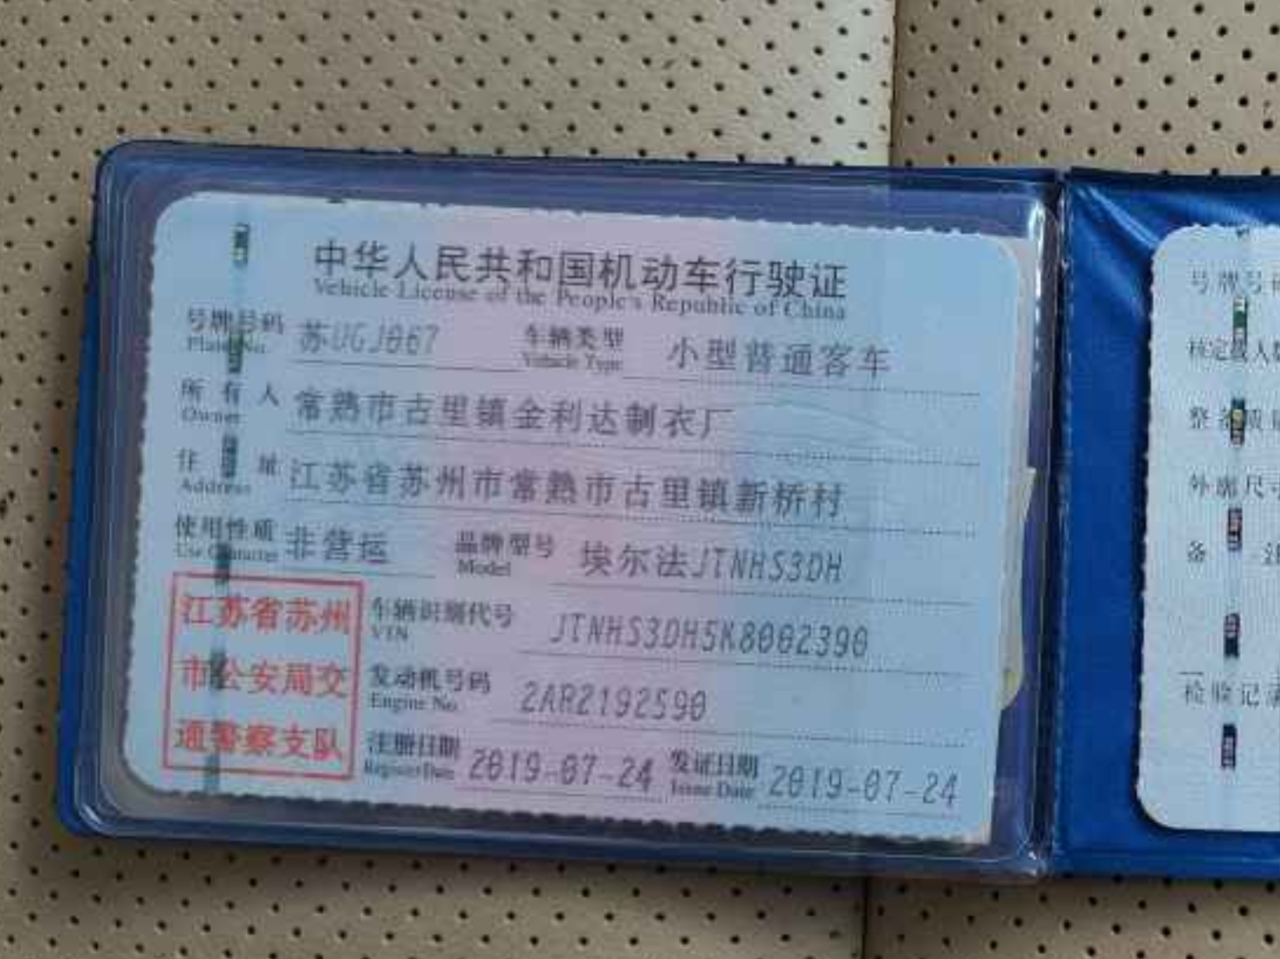 中华人民共和国机动车行驶证
Vehicle License of the People's Republic of China
号牌号码 苏UGJ067 车辆类型 小型普通客车
Plate No. Vehicle Type
所有人 常熟市古里镇金利达制衣厂
Owner
住址 江苏省苏州市常熟市古里镇新桥村
Address
使用性质 非营运 品牌型号 埃尔法JTNHS3DH
Use Character Model
江苏省苏州
市公安局交
通警察支队
车辆识别代号 JTNHS3DH5K8002390
VIN
发动机号码 2AR2192590
Engine No.
注册日期 2019-07-24 发证日期 2019-07-24
Register Date Issue Date
号牌号
核定载人
整备质
外廓尺寸
备
检验记录